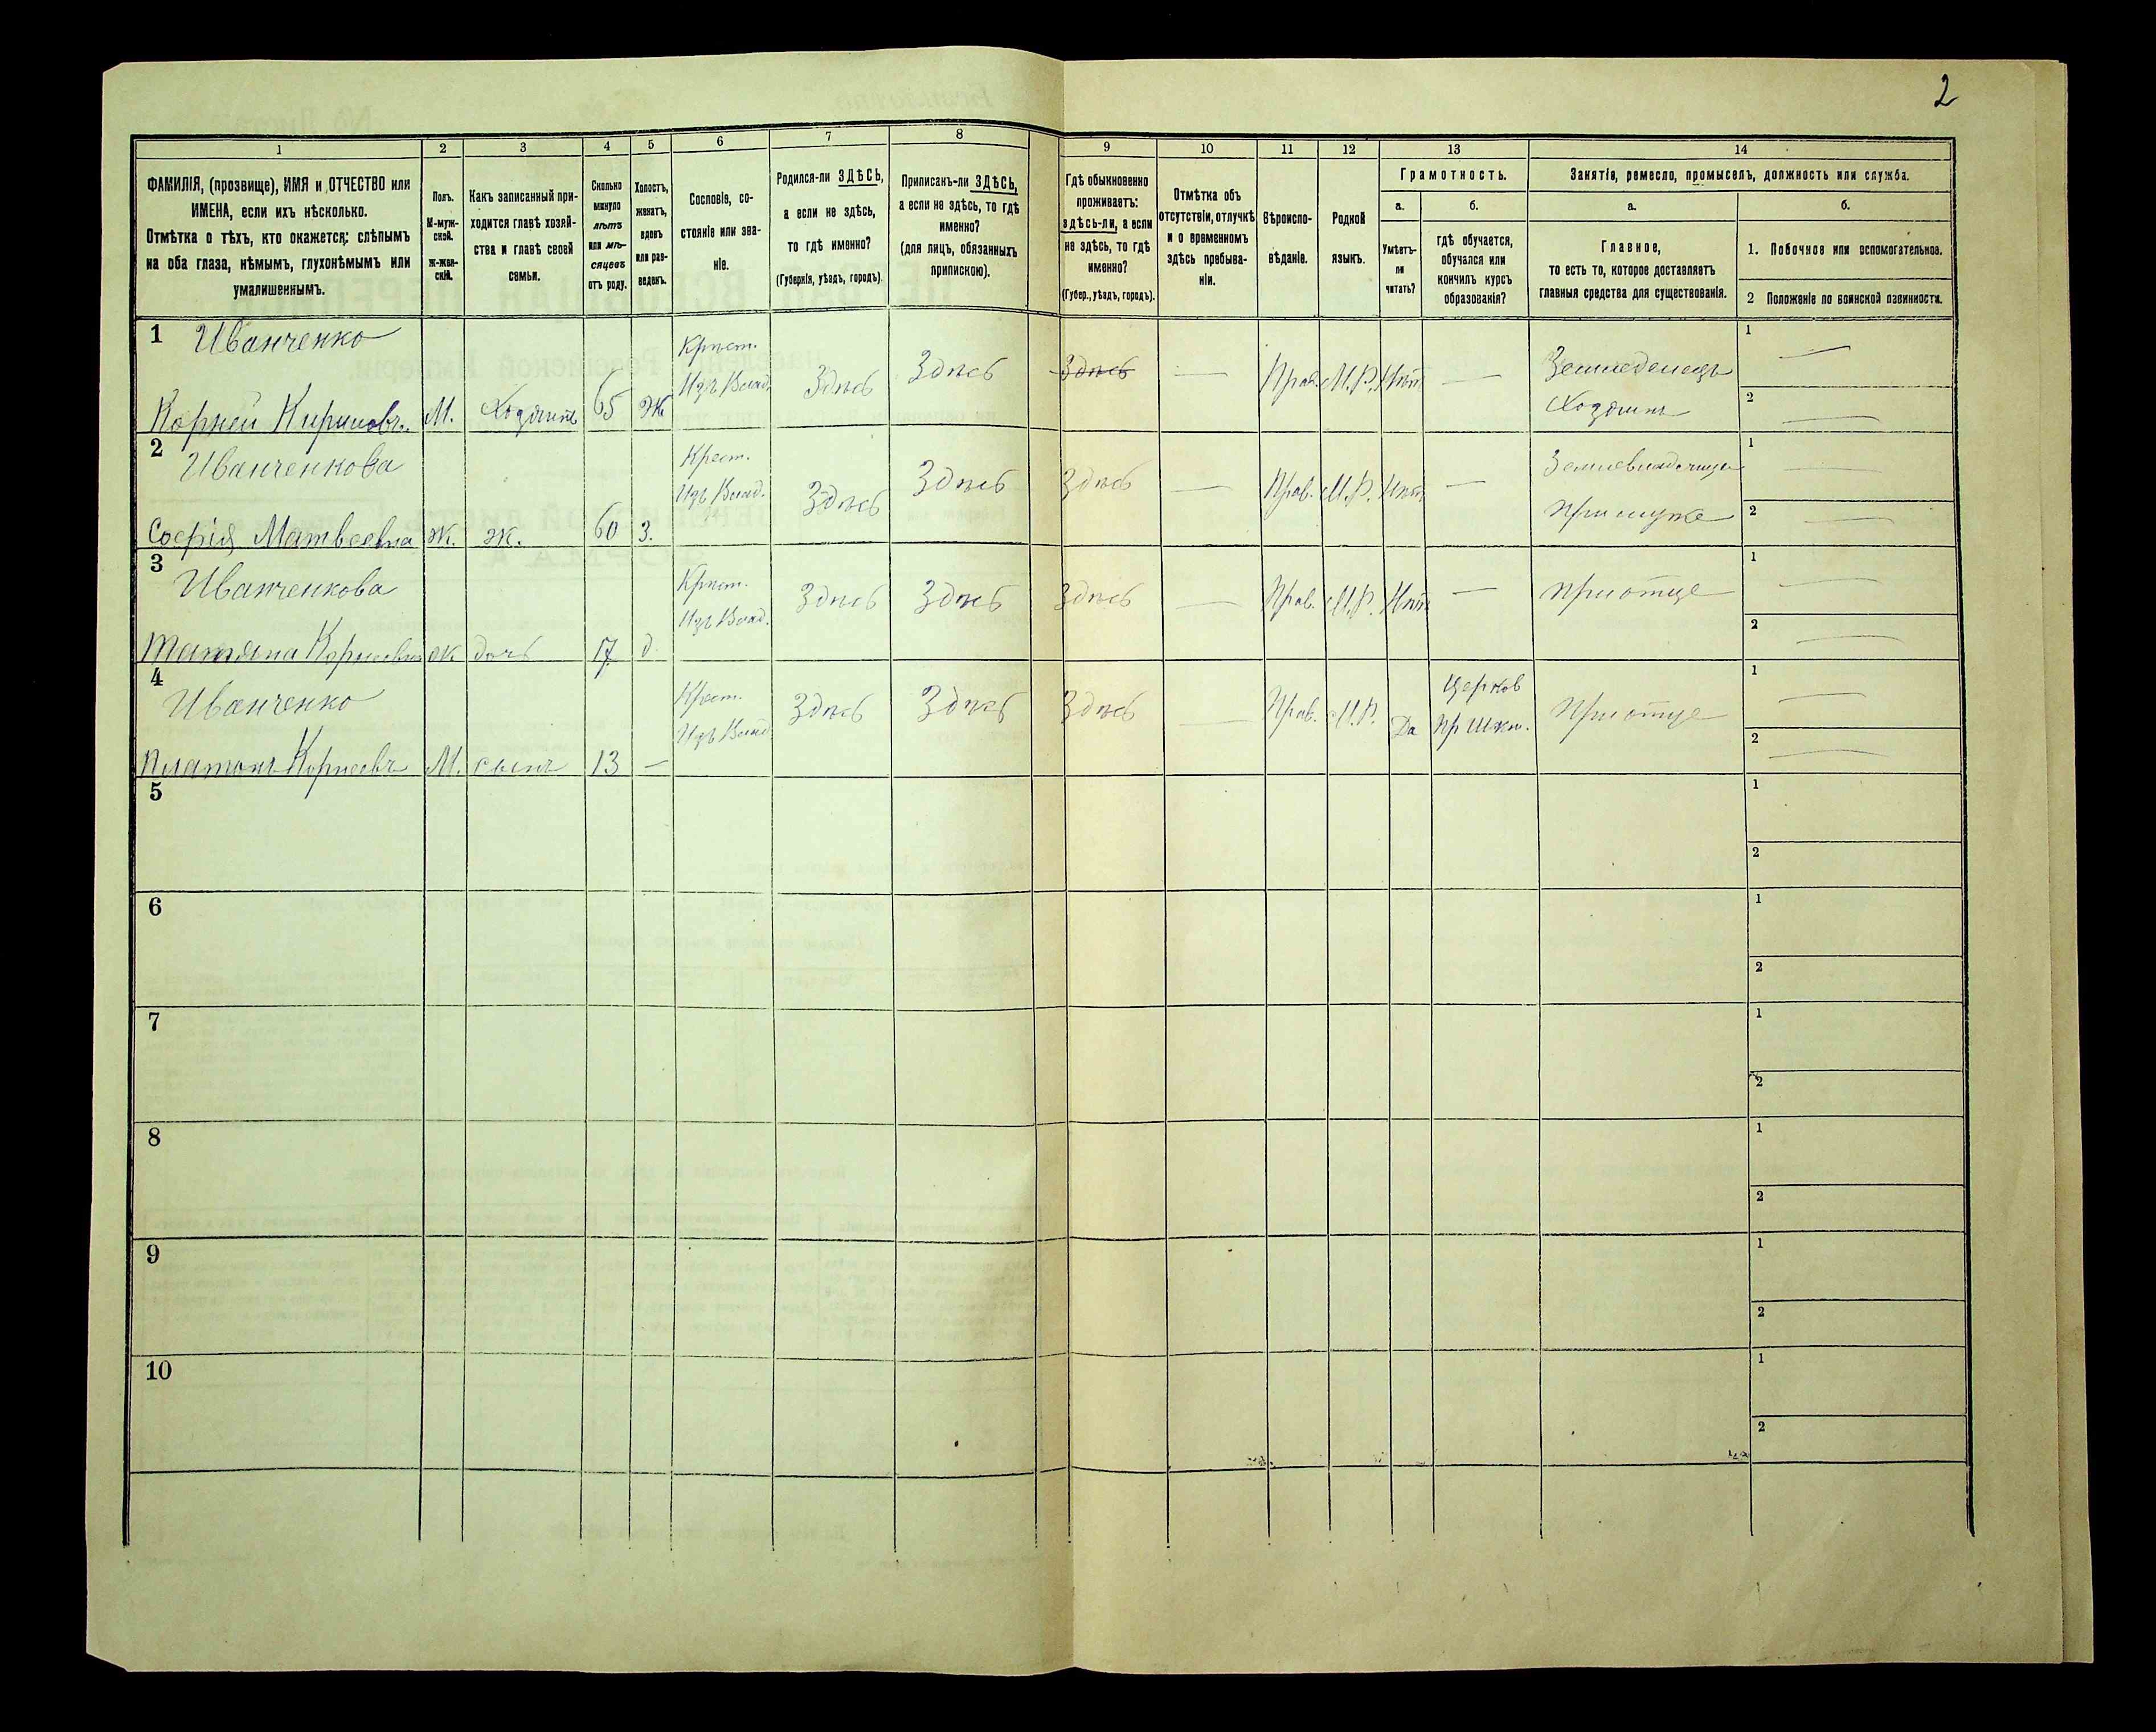 2
1
2
3
4
5
6
7
8
9
10
11
12
13
14
ФАМИЛІЯ, (прозвище), ИМЯ и ОТЧЕСТВО или
ИМЕНА, если ихъ нѣсколько.
Отмѣтка о тѣхъ, кто окажется: слѣпымъ
на оба глаза, нѣмымъ, глухонѣмымъ или
умалишеннымъ.
Полъ.
М-муж-
ской.
Ж-жен-
скій.
Какъ записанный при-
ходится главѣ хозяй-
ства и главѣ своей
семьи.
Сколько
минуло
лѣтъ
или мѣ-
сяцевъ
отъ роду.
Холостъ,
женатъ,
вдовъ
или раз-
веденъ.
Сословіе, со-
стояніе или зва-
ніе.
Родился-ли ЗДѢСЬ,
а если не здѣсь,
то гдѣ именно?
(Губернія, уѣздъ, городъ).
Приписанъ-ли ЗДѢСЬ,
а если не здѣсь, то гдѣ
именно?
(для лицъ, обязанныхъ
припискою).
Гдѣ обыкновенно
проживаетъ:
здѣсь-ли, а если
не здѣсь, то гдѣ
именно?
(Губер., уѣздъ, городъ).
Отмѣтка объ
отсутствіи, отлучкѣ
и о временномъ
здѣсь пребыва-
ніи.
Вѣроиспо-
вѣданіе.
Родной
языкъ.
Грамотность.
а.
Умѣетъ-
ли
читать?
б.
гдѣ обучается,
обучался или
кончилъ курсъ
образованія?
Занятіе, ремесло, промыселъ, должность или служба.
а.
Главное,
то есть то, которое доставляетъ
главныя средства для существованія.
б.
1. Побочное или вспомогательное.
2 Положеніе по воинской повинности.
1 Иванченко
Корней Кириловъ М. Хозяинъ 65 Ж
Крест.
Изъ Влад.
Здѣсь Здѣсь Здѣсь — Прав. М.Р. Нѣтъ —
Земледелецъ
Хозяинъ
1 —
2 —
2 Иванченкова
Софія Матвеевна Ж. Ж. 60 З.
Крест.
Изъ Влад.
Здѣсь Здѣсь Здѣсь — Прав. М.Р. Нѣтъ —
При муже
1 —
2 —
3 Иванченкова
Татьяна Корнеевна Ж дочь 17 д
Крест.
Изъ Влад.
Здѣсь Здѣсь Здѣсь — Прав. М.Р. Нѣтъ —
При отце
1 —
2 —
4 Иванченко
Платонъ Корнеевъ М. сынъ 13 —
Крест.
Изъ Влад.
Здѣсь Здѣсь Здѣсь — Прав. М.Р. Да
Церков
Пр Шкл.
При отце
1 —
2 —
5
1
2
6
1
2
7
1
2
8
1
2
9
1
2
10
1
2